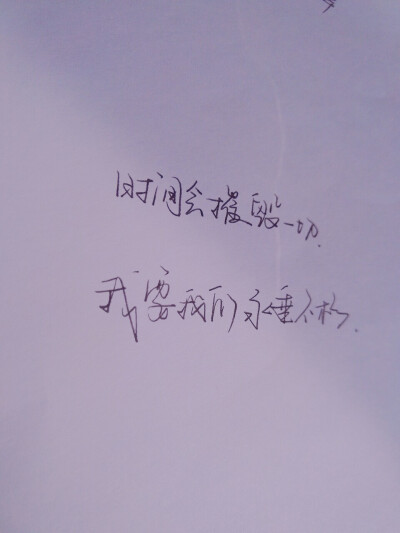 时间会摧毁一切.
我要我们永垂不朽.